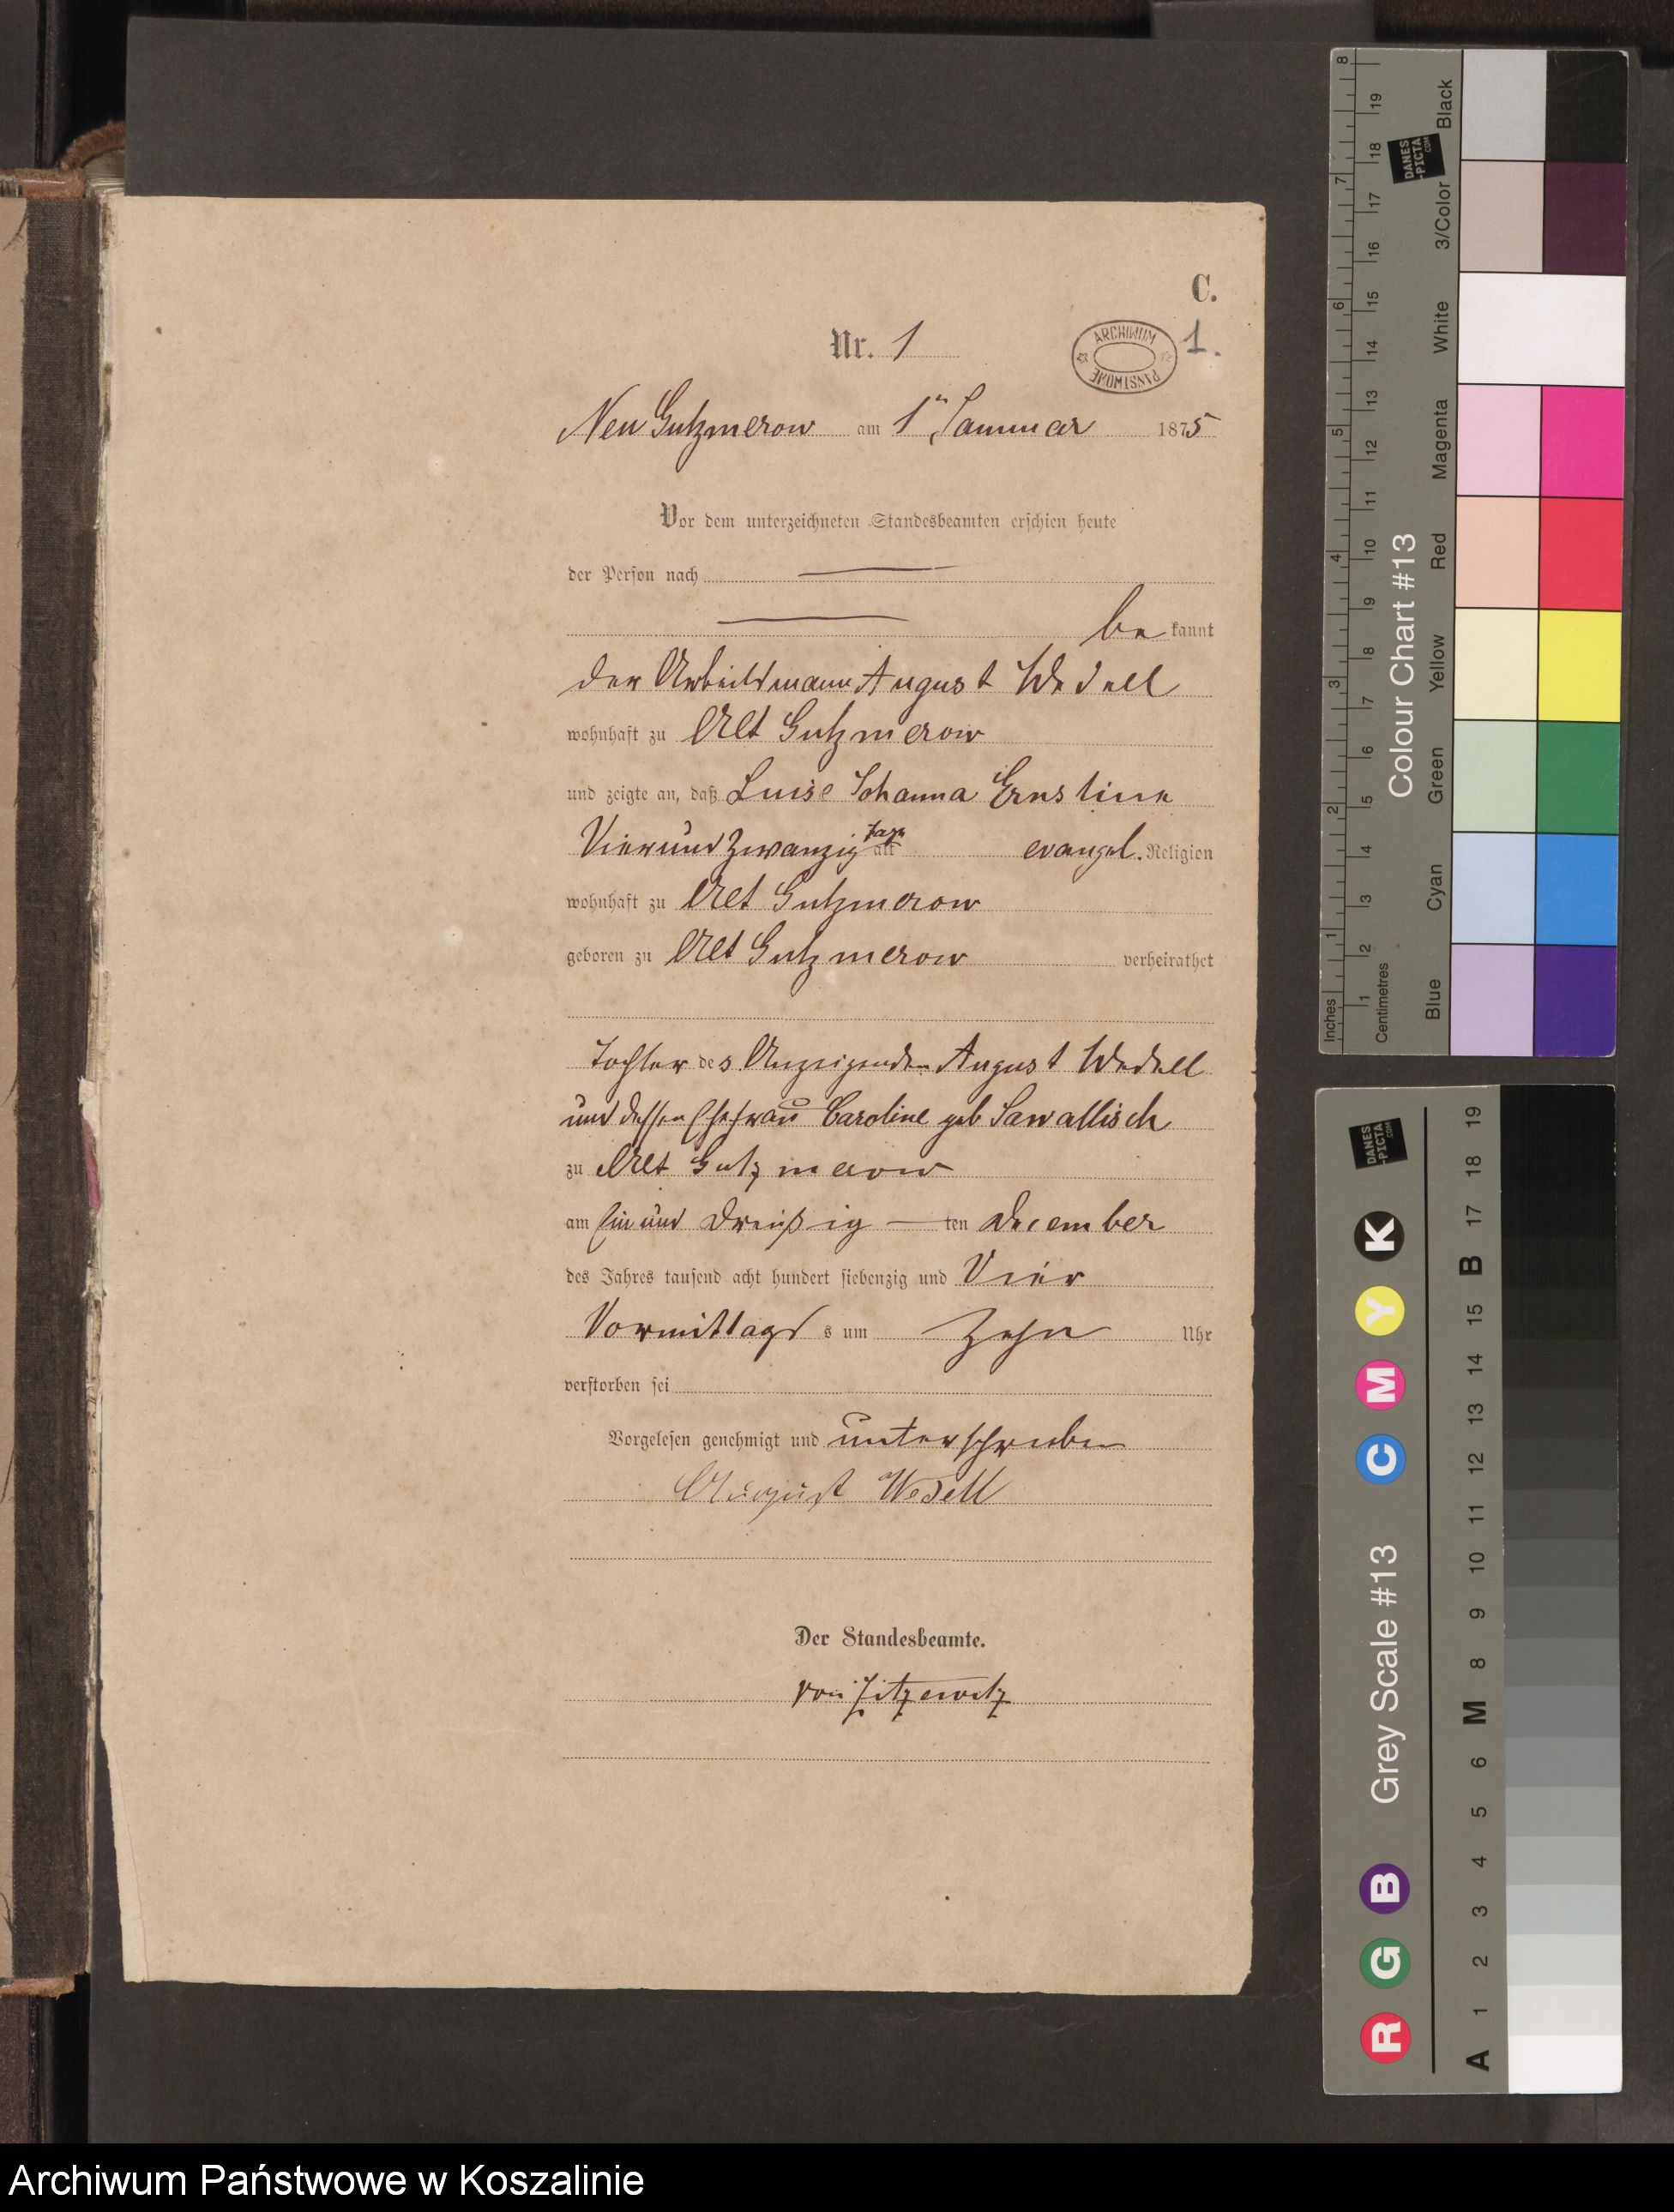 C.
Nr. 1
ARCHIWUM PAŃSTWOWE
1.
Neu Gutzmerow am 1ⁿ Januar 1875
Vor dem unterzeichneten Standesbeamten erschien heute
der Person nach
be kannt
der Arbeitsmann August Wedell
wohnhaft zu Alt Gutzmerow
und zeigte an, daß Luise Johanna Ernstine
Vier und Zwanzig Tage alt evangel. Religion
wohnhaft zu Alt Gutzmerow
geboren zu Alt Gutzmerow verheirathet
Tochter des Anzeigenden August Wedell
und dessen Ehefrau Caroline geb Sawallisch
zu Alt Gutzmerow
am Ein und Dreißig ten December
des Jahres tausend acht hundert siebenzig und Vier
Vormittags s um Zehn Uhr
verstorben sei
Vorgelesen genehmigt und unterschrieben
August Wedell
Der Standesbeamte.
von Zitzewitz
Inches 1 2 3 4 5 6 7 8
Centimetres 1 2 3 4 5 6 7 8 9 10 11 12 13 14 15 16 17 18 19
Colour Chart #13
Blue Cyan Green Yellow Red Magenta White 3/Color Black
DANES -PICTA .COM
Grey Scale #13
R G B C M Y K
DANES -PICTA .COM
A 1 2 3 4 5 6 M 8 9 10 11 12 13 14 15 B 17 18 19
Archiwum Państwowe w Koszalinie